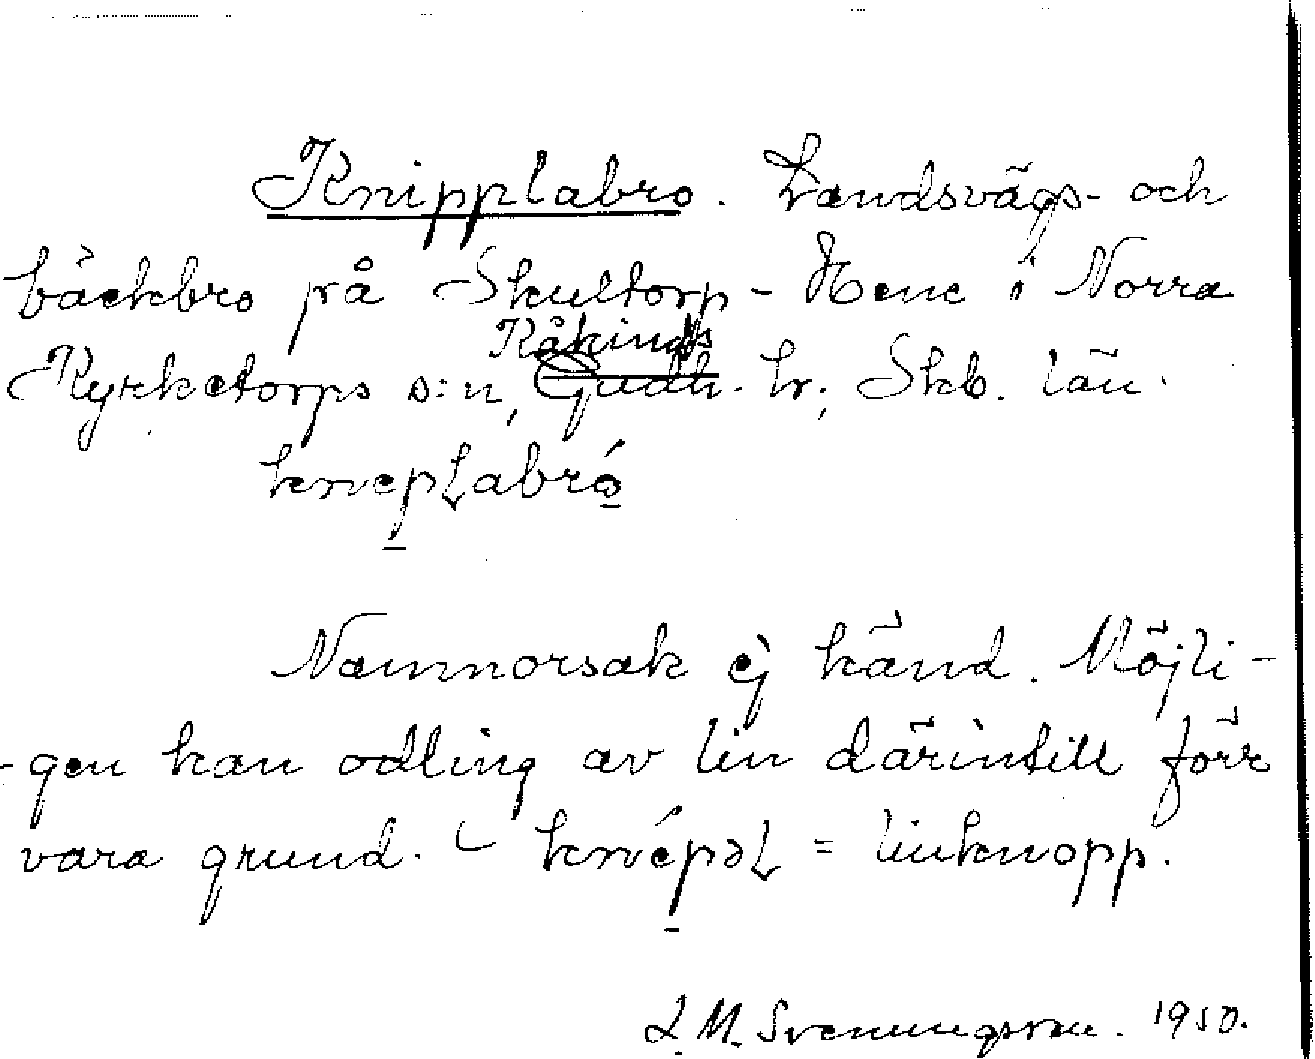 Knipplabro. Landsvägs- och
bäckbro på Skultorp - Hene i Norra
Kåkinds
Kyrketorps s:n, Gudh. hr; Skb. län.
knepLabró
Namnorsak ej känd. Möjli-
-gen kan odling av lin därintill förr
vara grund. - knépəL = linknopp.
L. M. Svenungsson. 1950.